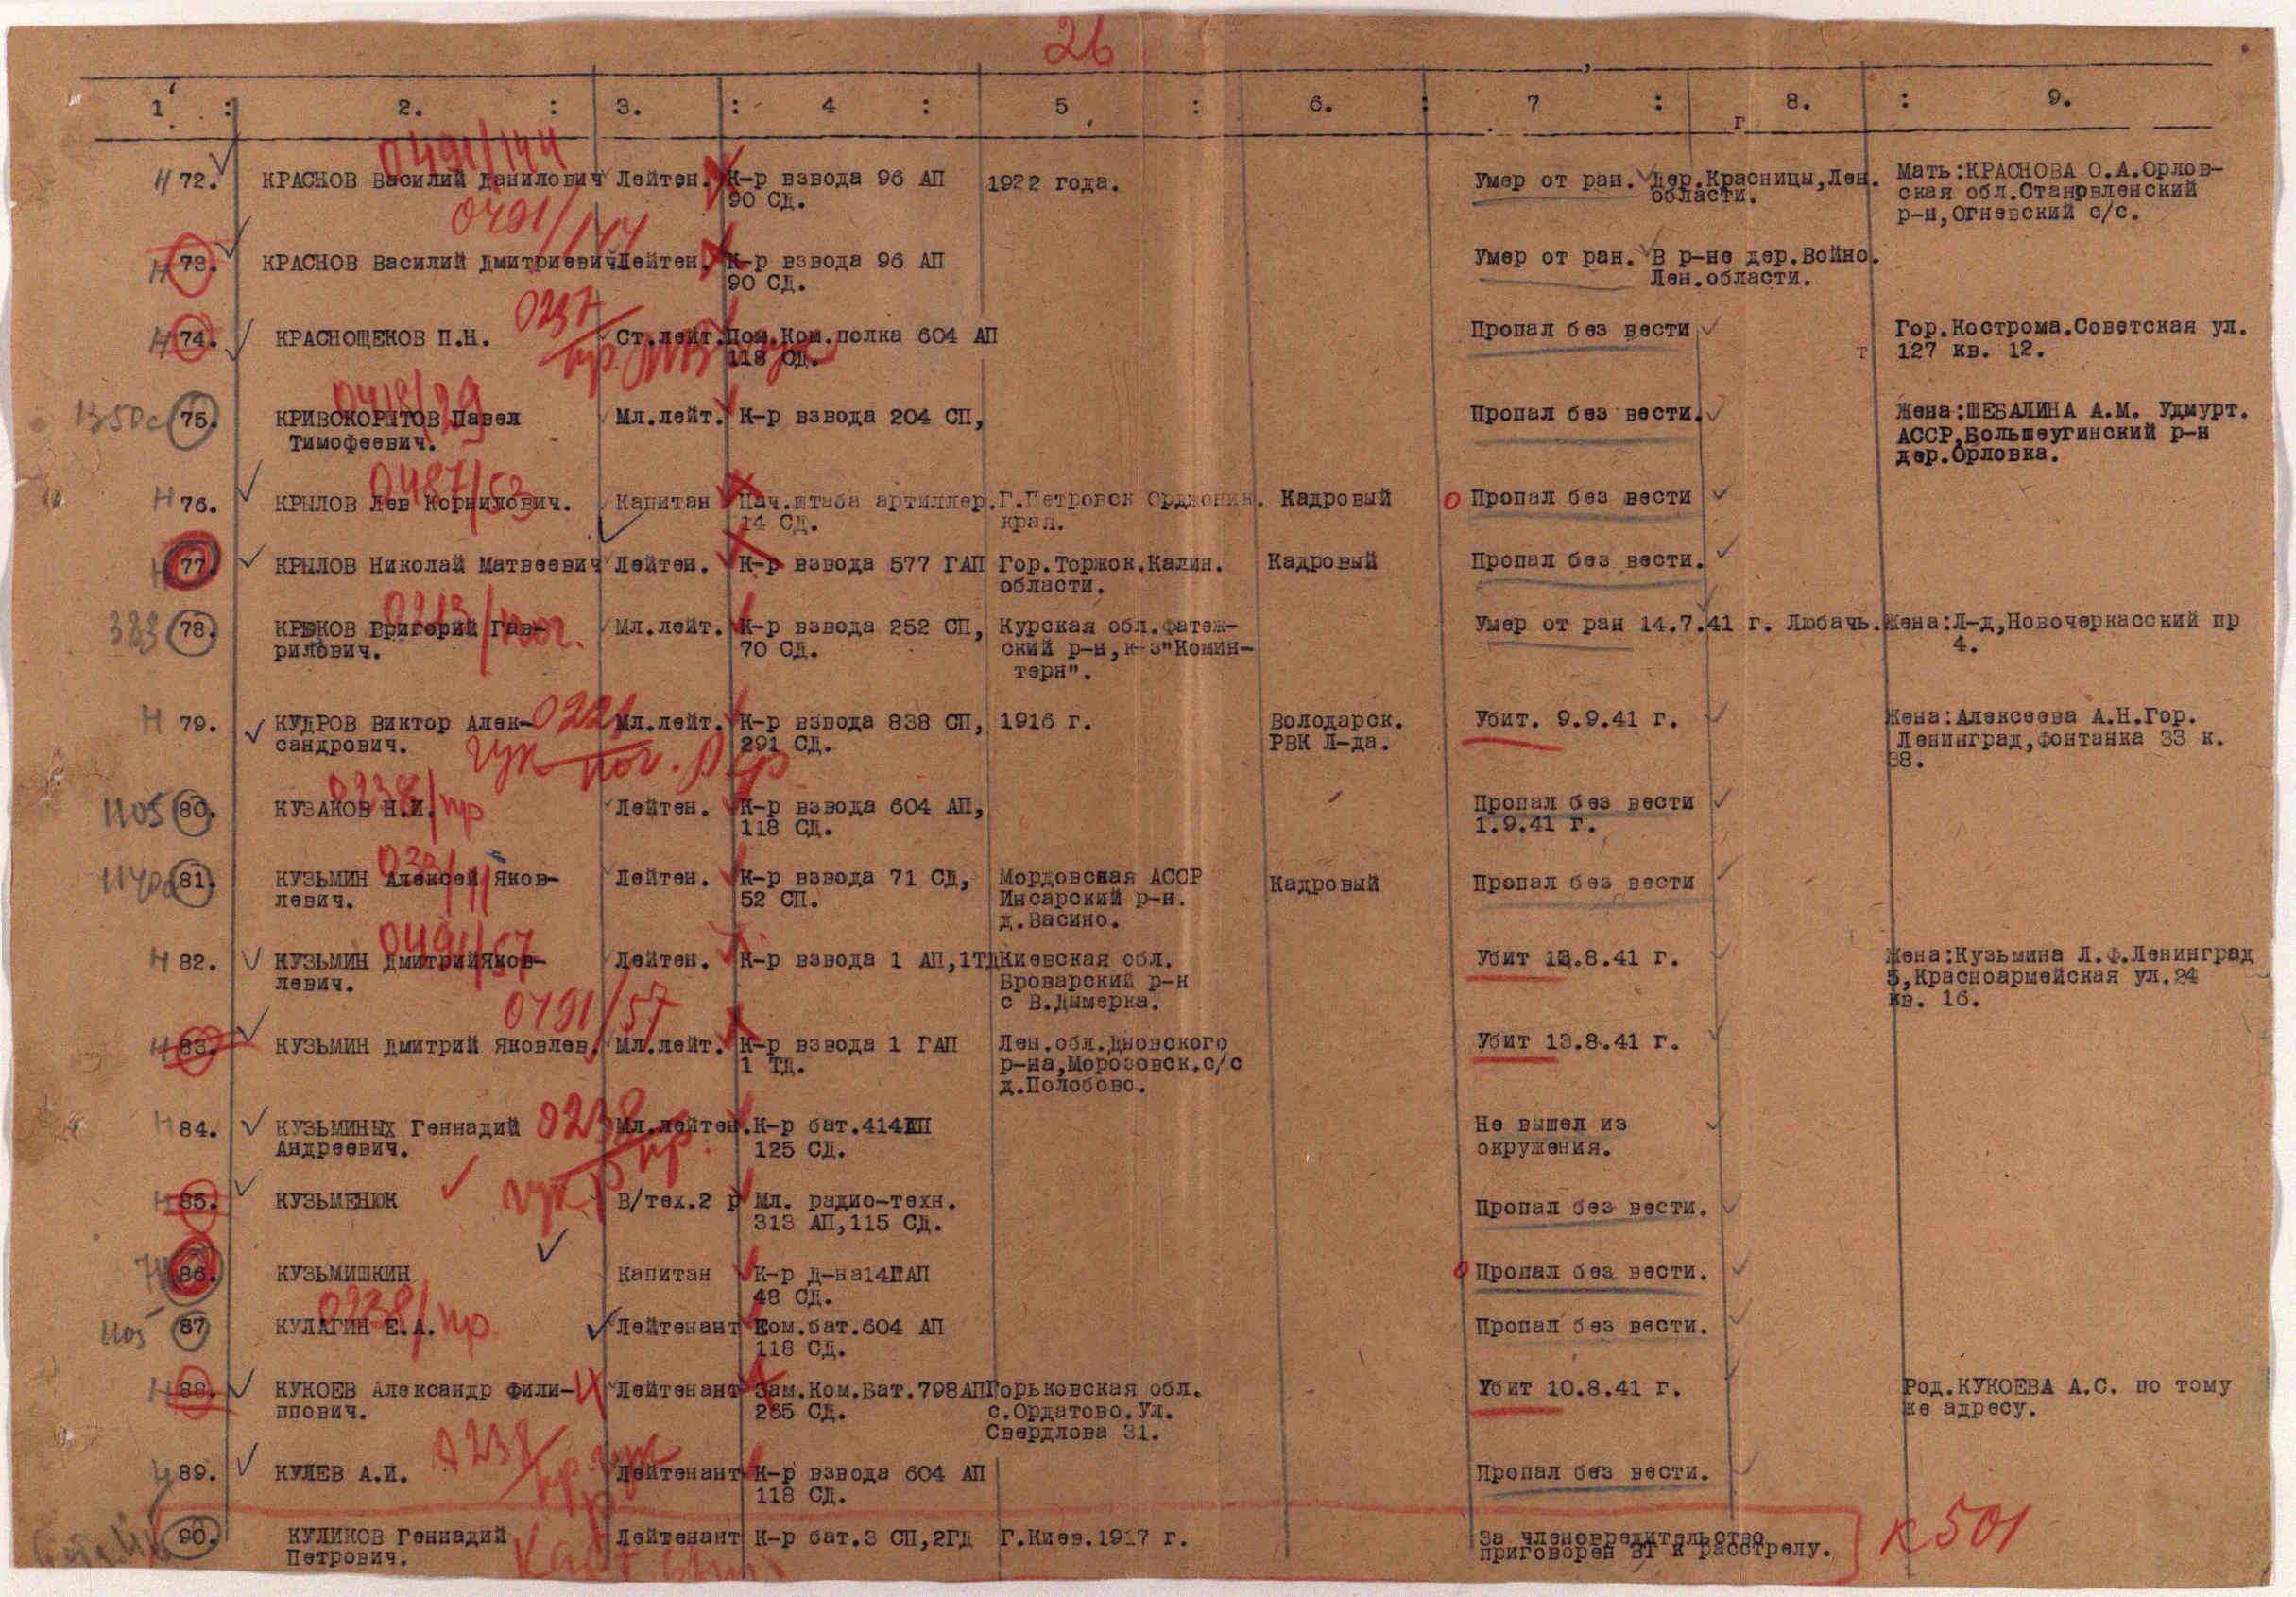 26
1 : 2. : 3. : 4 : 5 : 6. : 7 : 8. : 9.
0491/144
Н 72. КРАСНОВ Василий Данилович Лейтен. К-р взвода 96 АП 1922 года. Умер от ран. Дер.Красницы,Лен. Мать:КРАСНОВА О.А.Орлов-
90 СД. области. ская обл.Становленский
р-н,Огневский с/с.
0491/144
Н 73. КРАСНОВ Василий Дмитриевич Лейтен. К-р взвода 96 АП Умер от ран. В р-не дер.Войно.
90 СД. Лен.области.
0237
Н 74. КРАСНОЩЕКОВ П.Н. Ст.лейт. Пом.Ком.полка 604 АП Пропал без вести Гор.Кострома.Советская ул.
118 СД. 127 кв. 12.
0418/29
1350с 75. КРИВОКОРЫТОВ Павел Мл.лейт. К-р взвода 204 СП, Пропал без вести. Жена:ШЕБАЛИНА А.М. Удмурт.
Тимофеевич. АССР,Большеугинский р-н
дер.Орловка.
0487/53
Н 76. КРЫЛОВ Лев Корнилович. Капитан Нач.штаба артиллер. Г.Петровск Орджоник. Кадровый О Пропал без вести
14 СД. края.
77 КРЫЛОВ Николай Матвеевич Лейтен. К-р взвода 577 ГАП Гор.Торжок.Калин. Кадровый Пропал без вести.
области.
0213/пог.
323 78. КРЮКОВ Григорий Гав- Мл.лейт. К-р взвода 252 СП, Курская обл.Фатеж- Умер от ран 14.7.41 г. Любачь. Жена:Л-д,Новочеркасский пр
рилович. 70 СД. ский р-н,к-з"Комин- 4.
терн".
Н 79. КУДРОВ Виктор Алек- 0221 Мл.лейт. К-р взвода 838 СП, 1916 г. Володарск. Убит. 9.9.41 г. Жена:Алексеева А.Н.Гор.
сандрович. 291 СД. РВК Л-да. Ленинград,Фонтанка 33 к.
38.
0238/пр
1105 80. КУЗАКОВ Н.И. Лейтен. К-р взвода 604 АП, Пропал без вести
118 СД. 1.9.41 г.
81. КУЗЬМИН Алексей Яков- Лейтен. К-р взвода 71 СД, Мордовская АССР Кадровый Пропал без вести
левич. 52 СП. Инсарский р-н.
д.Васино.
0491/57
Н 82. КУЗЬМИН Дмитрий Яков- Лейтен. К-р взвода 1 АП,1ТД Киевская обл. Убит 13.8.41 г. Жена:Кузьмина Л.Ф.Ленинград
левич. Броварский р-н 5,Красноармейская ул.24
с В.Дымерка. кв. 16.
0491/57
Н 83. КУЗЬМИН Дмитрий Яковлев. Мл.лейт. К-р взвода 1 ГАП Лен.обл.Дновского Убит 13.8.41 г.
1 ТД. р-на,Морозовск.с/с
д.Полобово.
Н 84. КУЗЬМИНЫХ Геннадий 0238 Мл.лейтен. К-р бат.414 АП Не вышел из
Андреевич. пр. 125 СД. окружения.
Н 85. КУЗЬМЕНЮК В/тех.2 р Мл. радио-техн. Пропал без вести.
313 АП,115 СД.
86. КУЗЬМИШКИН Капитан К-р д-на14ГАП О Пропал без вести.
48 СД.
0238/пр.
1105 87 КУЛАГИН Е.А. Лейтенант Ком.бат.604 АП Пропал без вести.
118 СД.
Н 88. КУКОЕВ Александр Фили- Лейтенант Зам.Ком.Бат.798АП Горьковская обл. Убит 10.8.41 г. Род.КУКОЕВА А.С. по тому
ппович. 265 СД. с.Ордатово.Ул. же адресу.
Свердлова 31.
0238
Н 89. КУЛЕВ А.И. Лейтенант К-р взвода 604 АП Пропал без вести.
118 СД.
90. КУЛИКОВ Геннадий Лейтенант К-р бат.3 СП,2ГД Г.Киев.1917 г. За членовредительство К 501
Петрович. приговорен ВТ к расстрелу.